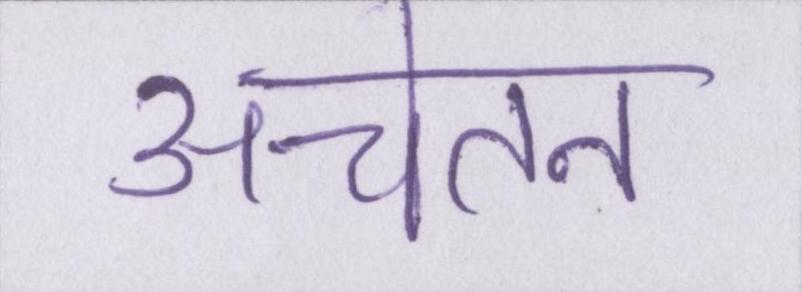 अचेतन